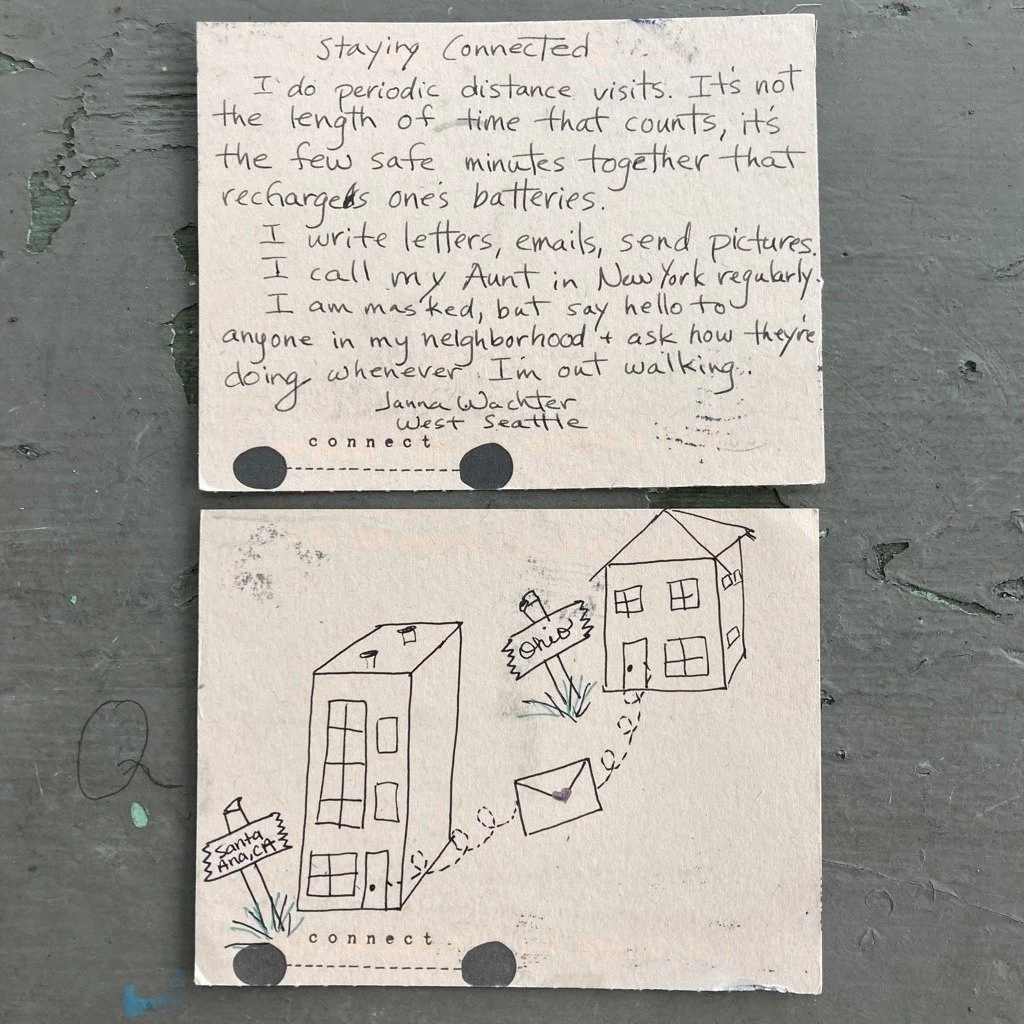 Staying Connected
I do periodic distance visits. It's not
the length of time that counts, it's
the few safe minutes together that
recharges one's batteries.
I write letters, emails, send pictures.
I call my Aunt in New York regularly.
I am masked, but say hello to
anyone in my neighborhood + ask how they're
doing whenever I'm out walking.
Janna Wachter
West Seattle
connect
Ohio
Santa
Ana, CA
connect